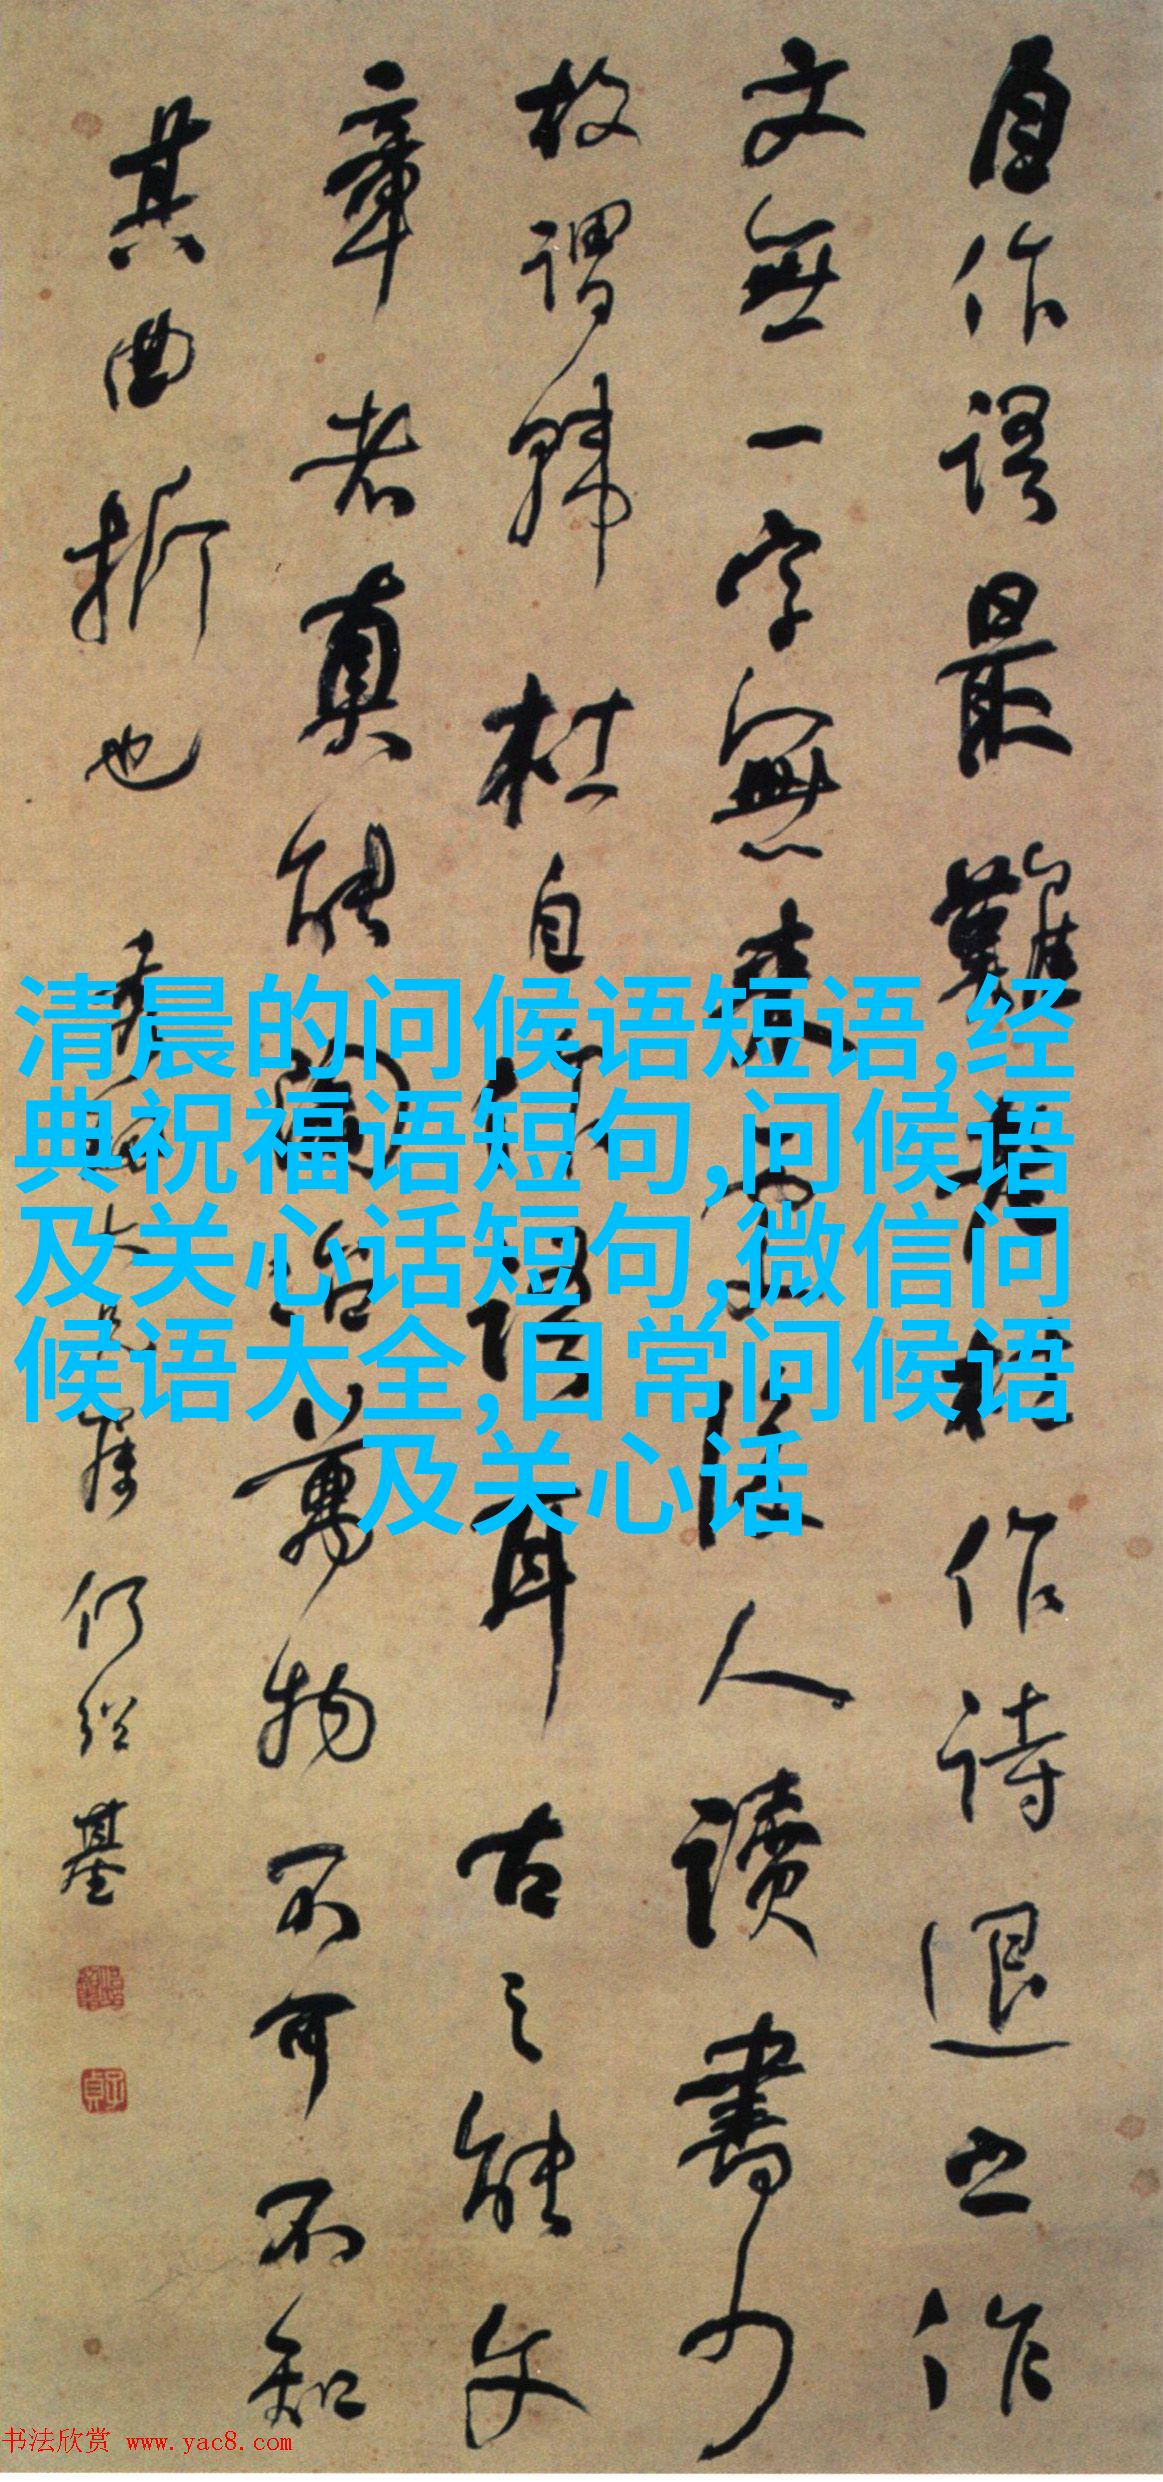 自作語最難老杜作詩退之作
文無一字無來處後人讀書少
故謂韓杜自作語耳古之能文
章者真能陶冶萬物不可不知
其曲折也
何紹基
清晨的问候语短语,经
典祝福语短句,问候语
及关心话短句,微信问
候语大全,日常问候语
及关心话
书法欣赏 www.yac8.com